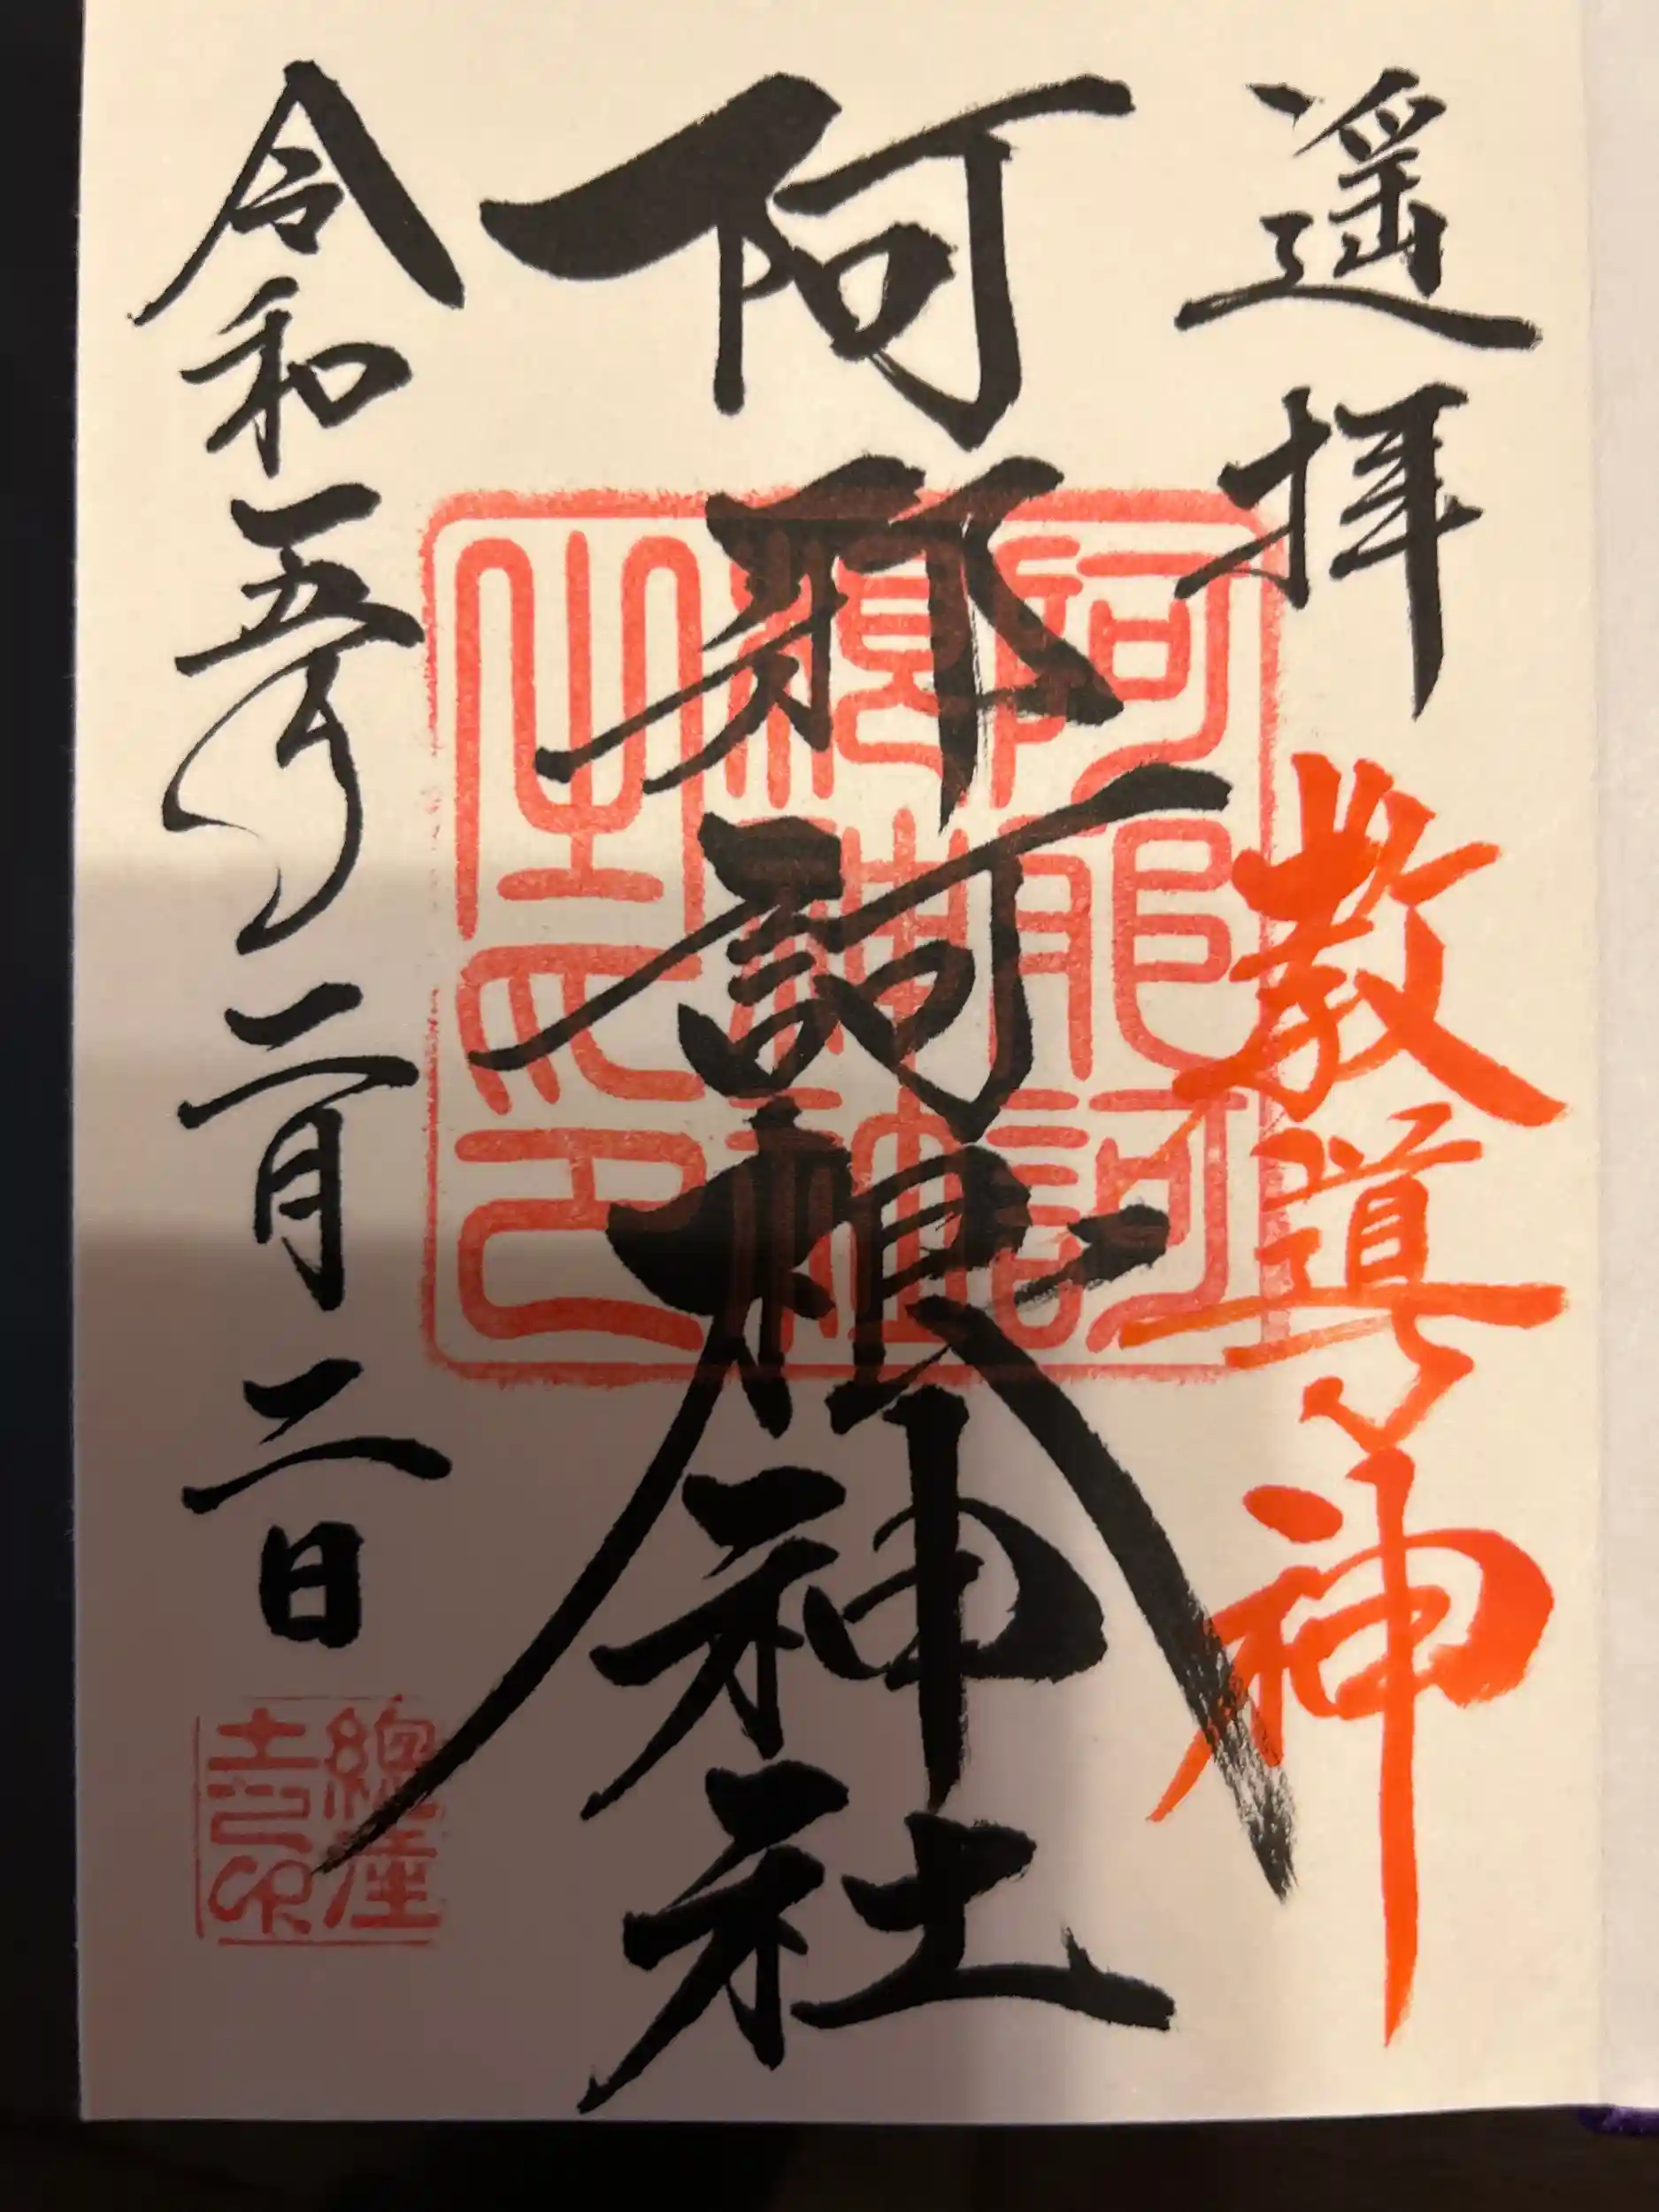 遥拝 教導神
阿邪訶根神社
令和五年二月二日
阿邪訶
根神社
之印
總産
土之印